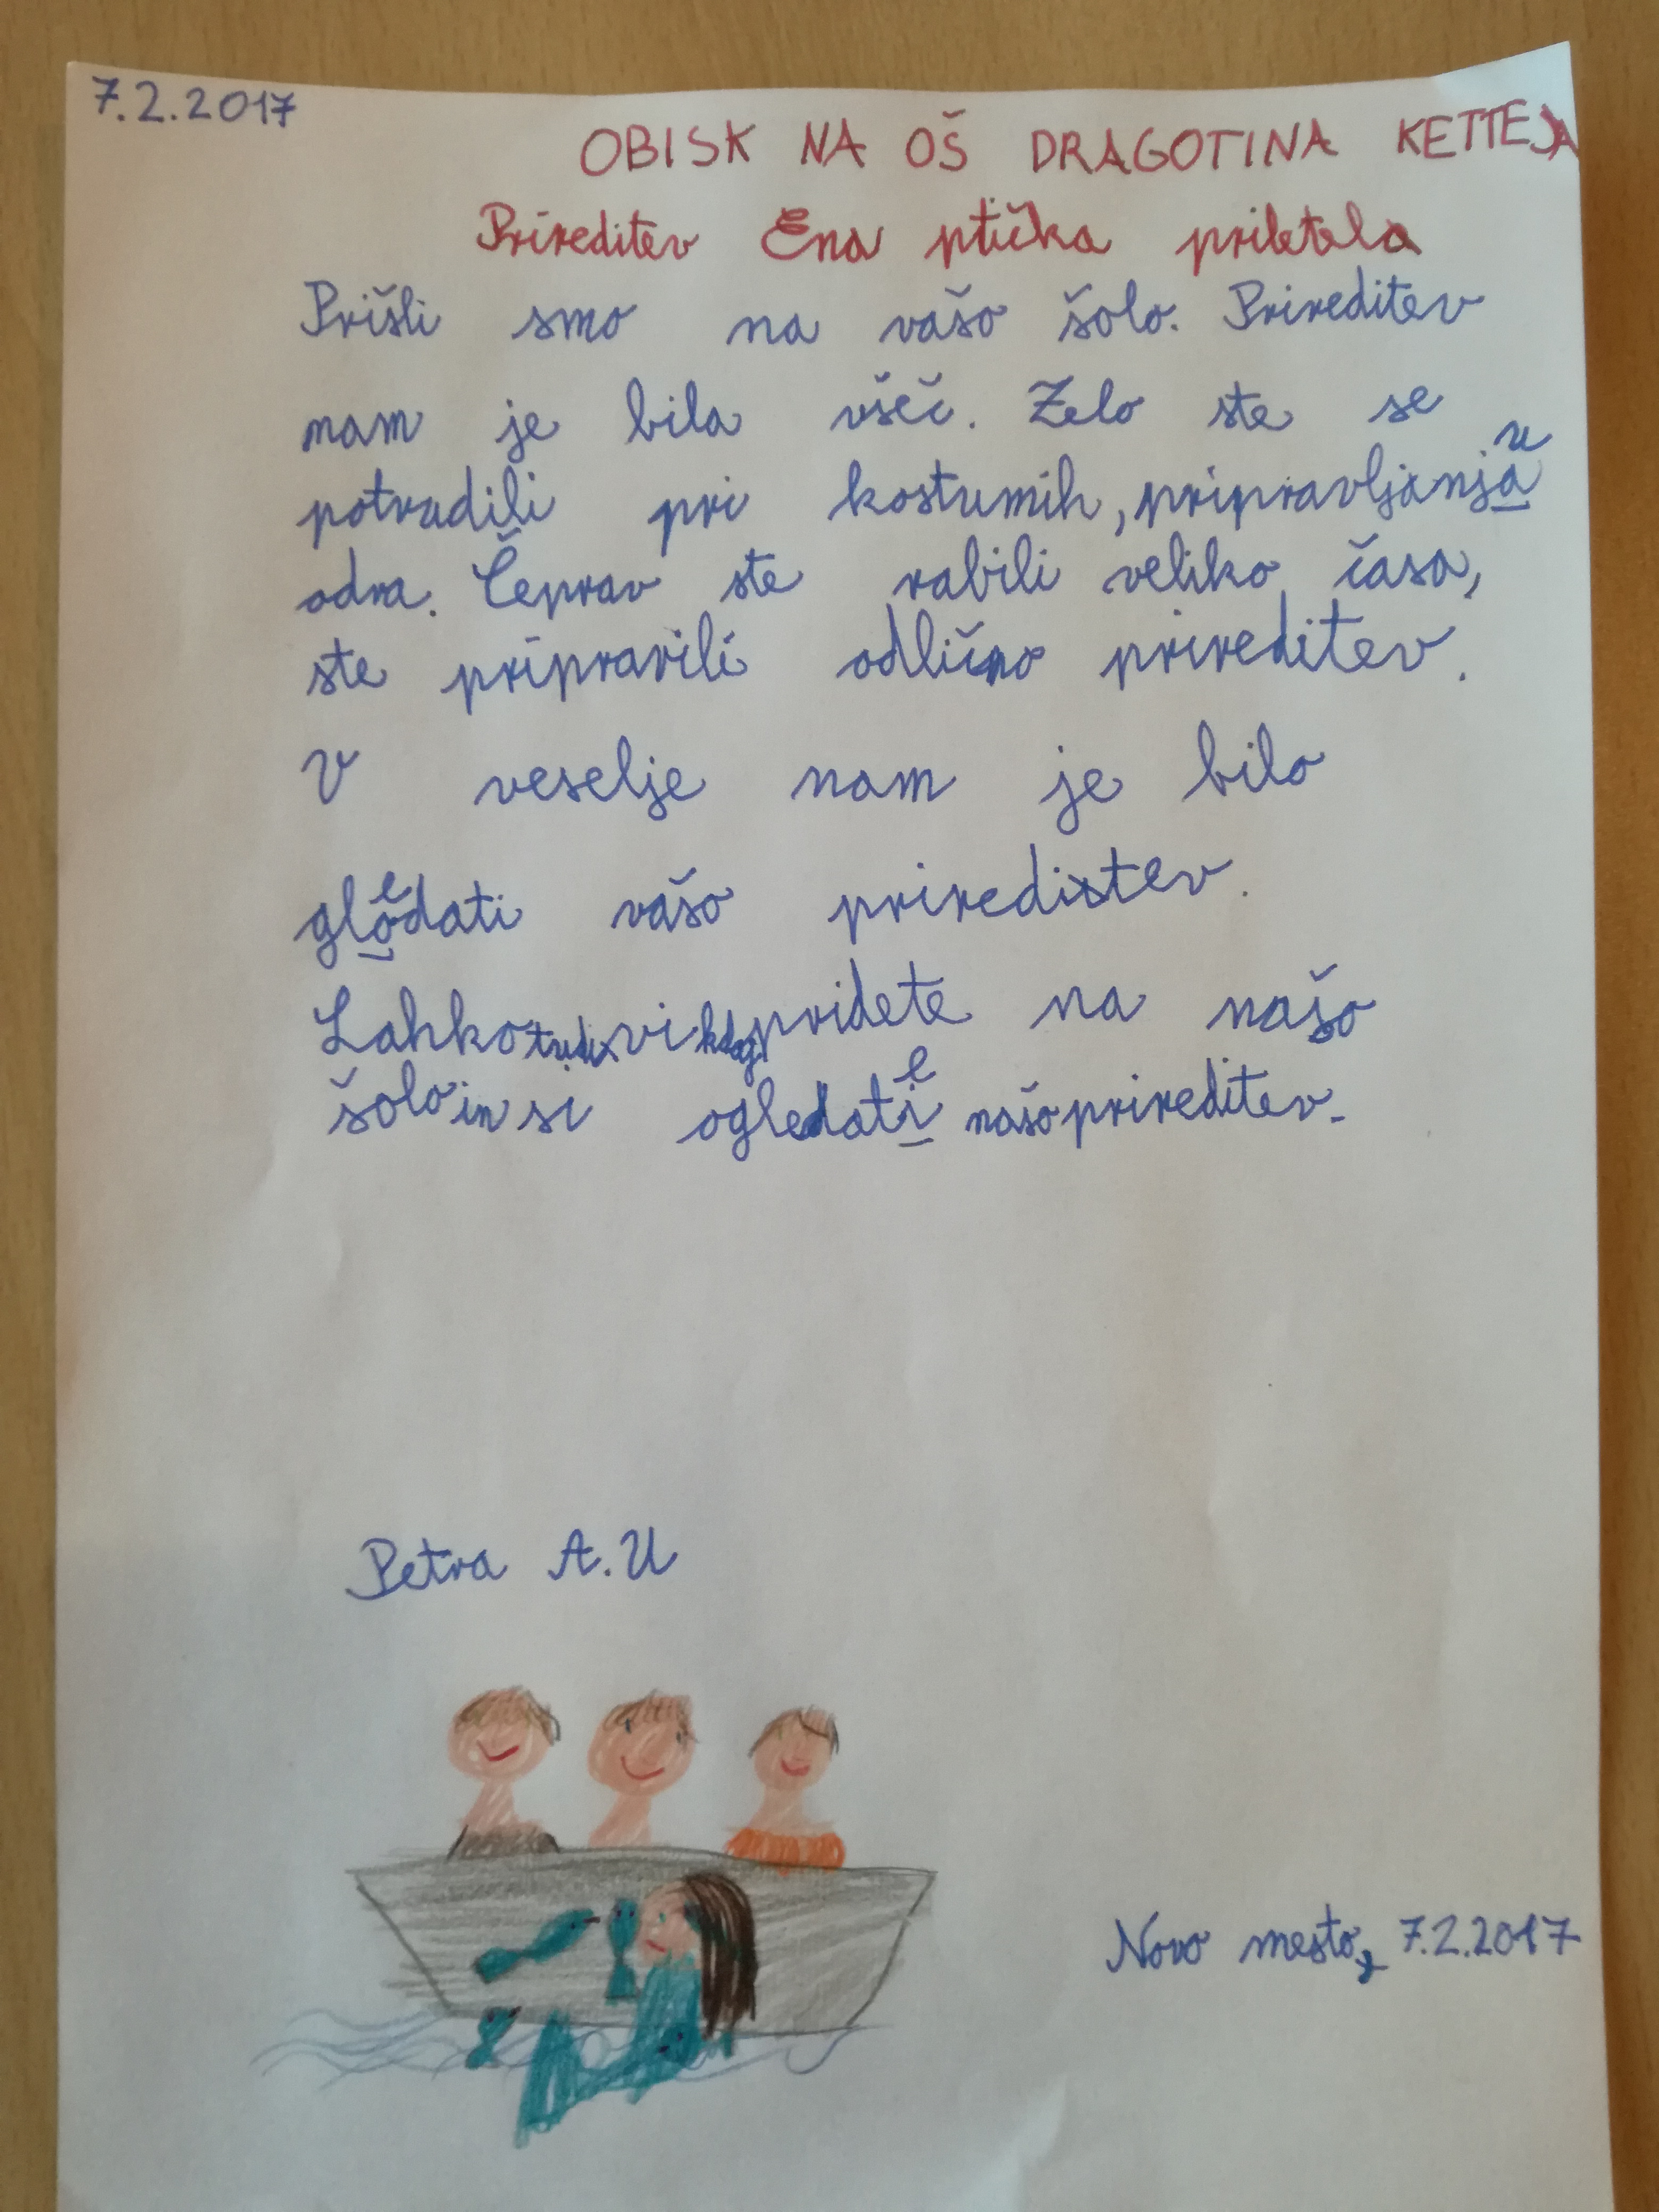 7.2.2017
OBISK NA OŠ DRAGOTINA KETTEJA
Prireditev Ena ptička priletela
Prišli smo na vašo šolo. Prireditev
nam je bila všeč. Zelo ste se
potrudili pri kostumih, pripravljanju
odra. Čeprav ste rabili veliko časa,
ste pripravili odlično prireditev.
V veselje nam je bilo
gledati vašo prireditev.
Lahko tudi vi kdaj pridete na našo
šolo in si ogledate našo prireditev.
Petra A.U
Novo mesto, 7.2.2017